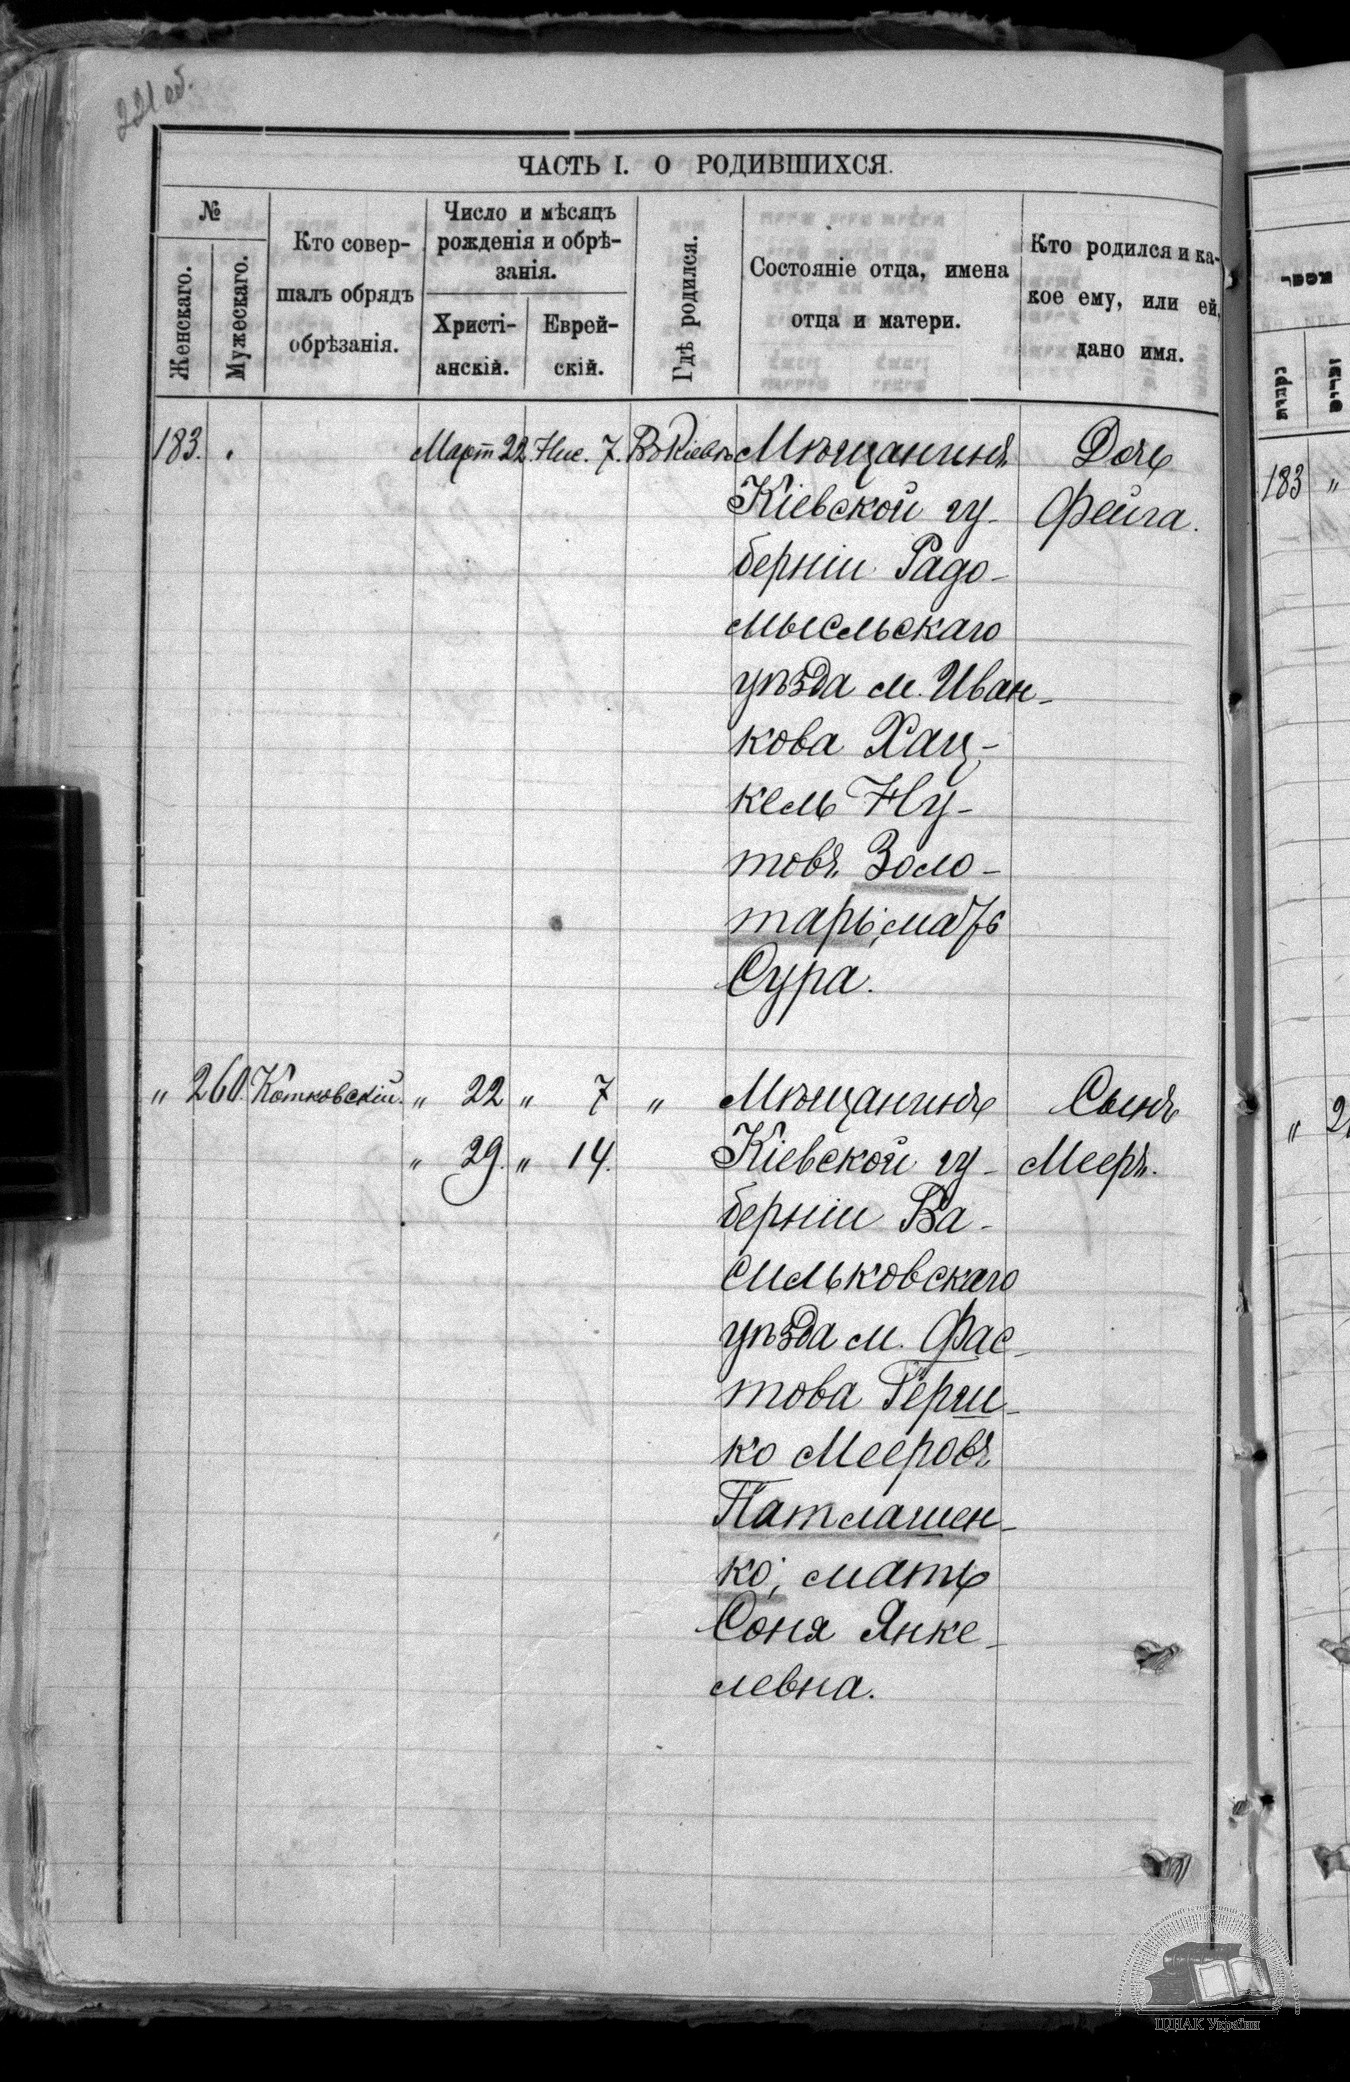 221 об.
ЧАСТЬ I. О РОДИВШИХСЯ.
№
Женскаго.
Мужескаго.
Кто совер-
шалъ обрядъ
обрѣзанія.
Число и мѣсяцъ
рожденія и обрѣ-
занія.
Христі-
анскій.
Еврей-
скій.
Гдѣ родился.
Состояніе отца, имена
отца и матери.
Кто родился и ка-
кое ему, или ей,
дано имя.
183. Март 22. Нис. 7. Въ Кіевѣ Мѣщанинъ Дочь
Кіевской гу- Фейга.
берніи Радо-
мысльскаго
уѣзда м. Иван-
кова Хац-
кель Ну-
товъ Золо-
тарь; мать
Сура.
" 260. Котковскій. " 22 " 7 " Мѣщанинъ Сынъ
" 29. " 14. Кіевской гу- Мееръ.
берніи Ва-
сильковскаго
уѣзда м. Фас-
това Герш-
ко Мееровъ
Патлашен-
ко; мать
Соня Янке-
левна.
183 "
"
ЦДІАК України